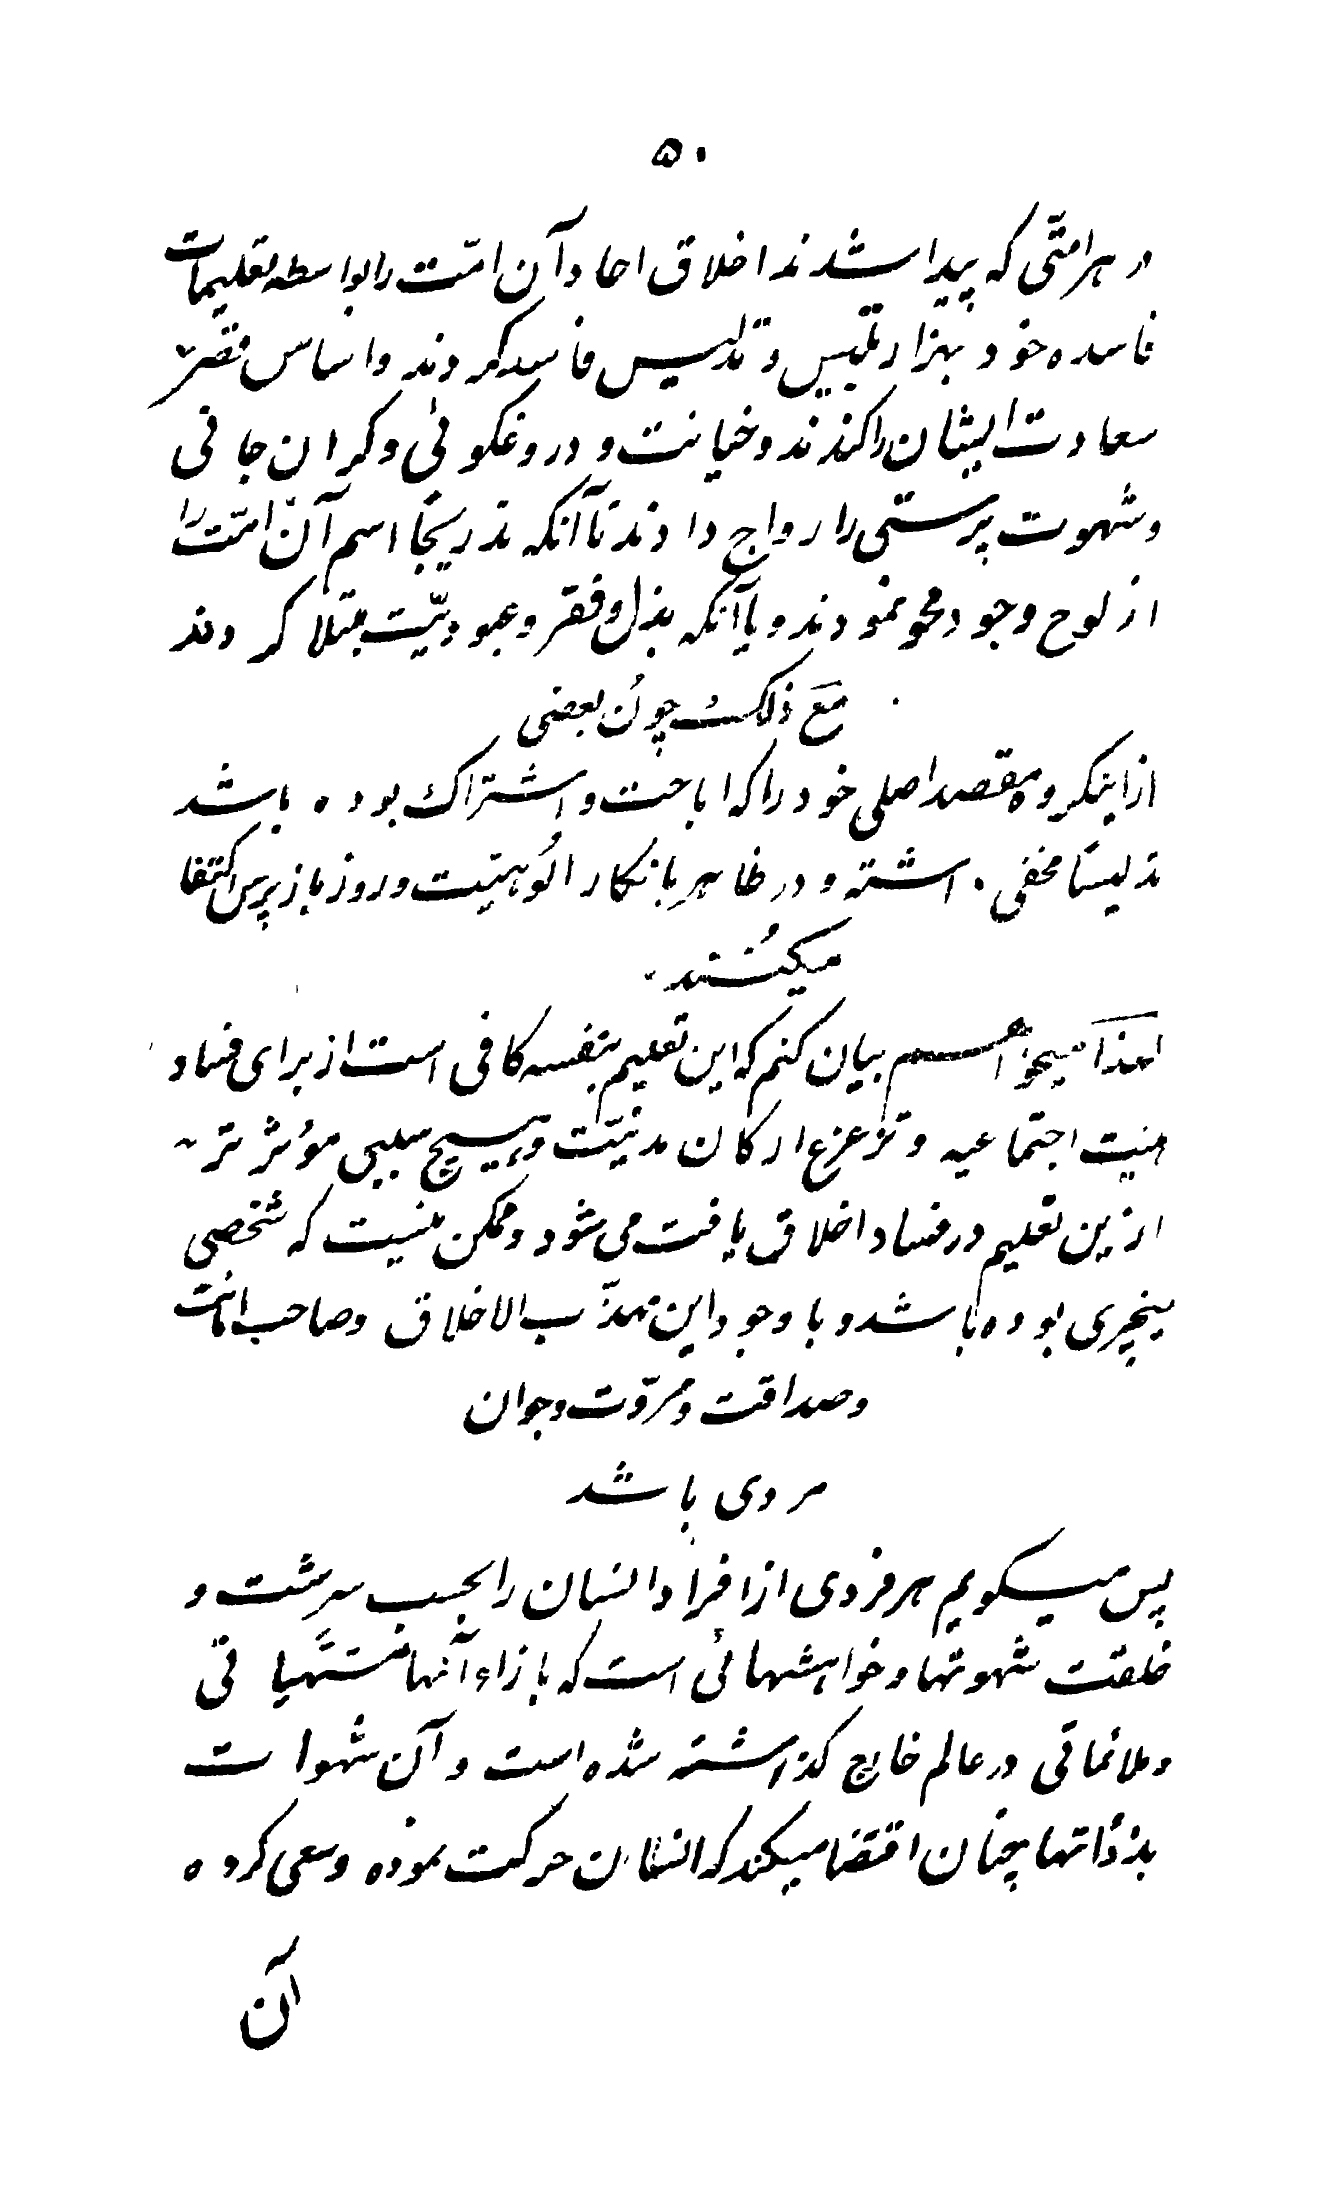 ۵۰
در هر امّتی که پیدا شدند اخلاق احاد آن امّت را بواسطه تعلیمات
فاسده خود بهزار تلبیس و تدلیس فاسد کردند و اساس قصر
سعادت ایشان را کندند و خیانت و دروغکوئی و کران جانی
و شهوت پرستی را رواج دادند تا آنکه تدریجًا اسم آن امّت را
از لوح وجود محو نمودند و یا آنکه بذل و فقر و عبودیّت مبتلا کردند
مَعَ ذلک چون بعضی
از اینکروه مقصد اصلی خود را که اباحت و اشتراک بوده باشد
تدلیسًا مخفی داشته و در ظاهر بانکار الُوهیّت و روز بازپرس اکتفا
میکُنند
لهذا میخواهم بیان کنم که این تعلیم بنفسه کافی است از برای فساد
هیئت اجتماعیه و تزعزع ارکان مدنیّت و هیچ سببی مؤثر تر
ازین تعلیم در فساد اخلاق یافت می شود و ممکن نیست که شخصی
نیچری بوده باشد و با وجود این مهذّب الاخلاق و صاحب امانت
و صداقت و مروّت و جوان
مردی باشد
پس میکویم هر فردی از افراد انسان را بحسب سرشت و
خلقت شهوتها و خواهشهائی است که بازاء آنها مشتهیاتی
و ملائماتی در عالم خارج کذاشته شده است و آن شهوات
بذاتها چنان اقتضا میکند که انسان حرکت نموده و سعی کرده
آن